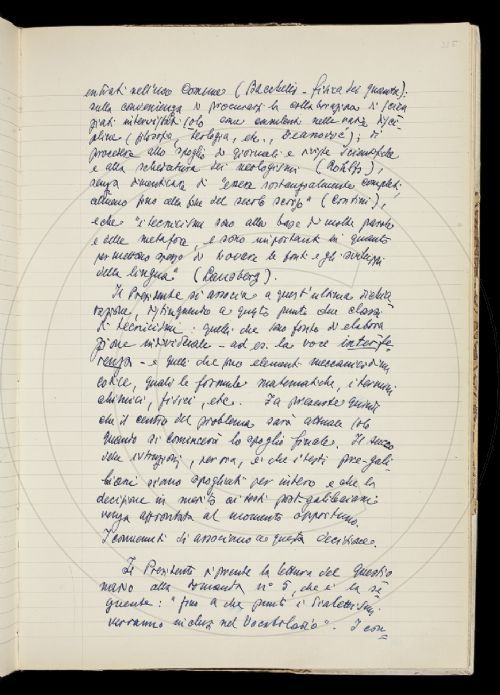 entrati nell'uso comune (Bacchelli - fisica dei quanta);
sulla convenienza di procurarsi la collaborazione di scien
ziati interpellati solo come consulenti nelle varie disci-
pline (filosofia, teologia, etc., Deanović); di
procedere allo spoglio di giornali e riviste scientifiche
e alla schedatura dei neologismi (Rohlfs);
senza dimenticare di "essere sostanzialmente completi,
almeno fino alla fine del secolo scorso" (Contini);
e che "i tecnicismi sono alla base di molte parole
e delle metafore, e sono importanti in quanto
permettono spesso di trovare le fonti e gli sviluppi
della lingua" (Lausberg).
Il Presidente si associa a quest'ultima dichia-
razione, distinguendo a questo punto due classi
di tecnicismi: quelli che sono fonte di elabora
zione individuale - ad es. la voce interfe
renza - e quelli che sono elementi meccanici di un
codice, quali le formule matematiche, i termini
chimici, fisici, etc. Fa presente quindi
che il centro del problema sarà attuale solo
quando si comincerà lo spoglio finale. Il succo
delle istruzioni, per ora, è che i testi pre-gali-
leiani siano spogliati per intero e che la
decisione in merito ai testi post-galileiani
venga affrontata al momento opportuno.
I convenuti si associano a questa decisione.
Il Presidente riprende la lettura del questio
nario alla domanda n° 5, che è la se
guente: "fino a che punto i dialettismi
verranno inclusi nel Vocabolario". I con=